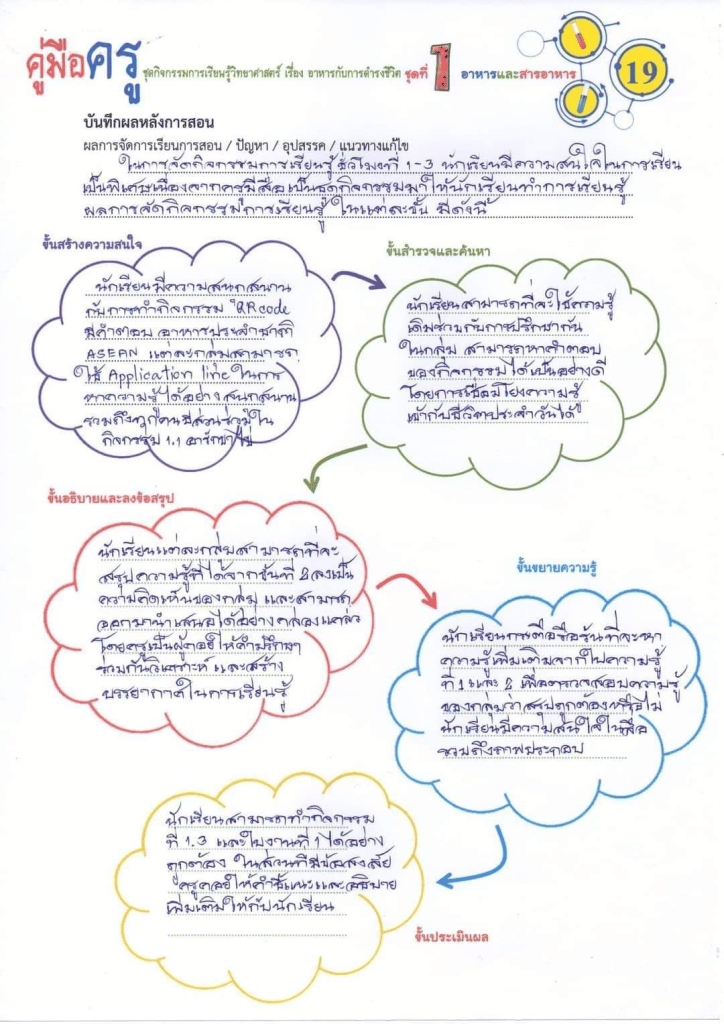 คู่มือครู ชุดกิจกรรมการเรียนรู้วิทยาศาสตร์ เรื่อง อาหารกับการดำรงชีวิต ชุดที่ 1 อาหารและสารอาหาร 19
บันทึกผลหลังการสอน
ผลการจัดการเรียนการสอน / ปัญหา / อุปสรรค / แนวทางแก้ไข
ในการจัดกิจกรรมการเรียนรู้ชั่วโมงที่ 1-3 นักเรียนมีความสนใจในการเรียน
เป็นพิเศษเนื่องจากครูมีสื่อเป็นชุดกิจกรรมมาให้นักเรียนทำการเรียนรู้
ผลการจัดกิจกรรมการเรียนรู้ ในแต่ละขั้น มีดังนี้
ขั้นสร้างความสนใจ
นักเรียนมีความสนุกสนาน
กับการทำกิจกรรม QR code
มีคำตอบ อาหารประจำชาติ
ASEAN แต่ละกลุ่มสามารถ
ใช้ Application line ในการ
หาความรู้ได้อย่างสนุกสนาน
รวมถึงทุกคนมีส่วนร่วมใน
กิจกรรม 1.1
ขั้นสำรวจและค้นหา
นักเรียนสามารถที่จะใช้ความรู้
เดิมร่วมกับการปรึกษากัน
ในกลุ่ม สามารถหาคำตอบ
ของกิจกรรมได้เป็นอย่างดี
โดยการเชื่อมโยงความรู้
เข้ากับชีวิตประจำวันได้
ขั้นอธิบายและลงข้อสรุป
นักเรียนแต่ละกลุ่มสามารถที่จะ
สรุปความรู้ที่ได้จากขั้นที่ 2 ลงเป็น
ความคิดเห็นของกลุ่ม และสามารถ
ออกมานำเสนอได้อย่างคล่องแคล่ว
โดยครูเป็นผู้คอยให้คำปรึกษา
ร่วมกันวิเคราะห์ และสร้าง
บรรยากาศในการเรียนรู้
ขั้นขยายความรู้
นักเรียนกระตือรือร้นที่จะหา
ความรู้เพิ่มเติมจากใบความรู้
ที่ 1 และ 2 เพื่อตรวจสอบความรู้
ของกลุ่มว่าสรุปถูกต้องหรือไม่
นักเรียนมีความสนใจในสื่อ
รวมถึงภาพประกอบ
นักเรียนสามารถทำกิจกรรม
ที่ 1.3 และใบงานที่ 1 ได้อย่าง
ถูกต้อง ในส่วนที่มีข้อสงสัย
ครูคอยให้คำชี้แนะและอธิบาย
เพิ่มเติมให้กับนักเรียน
ขั้นประเมินผล